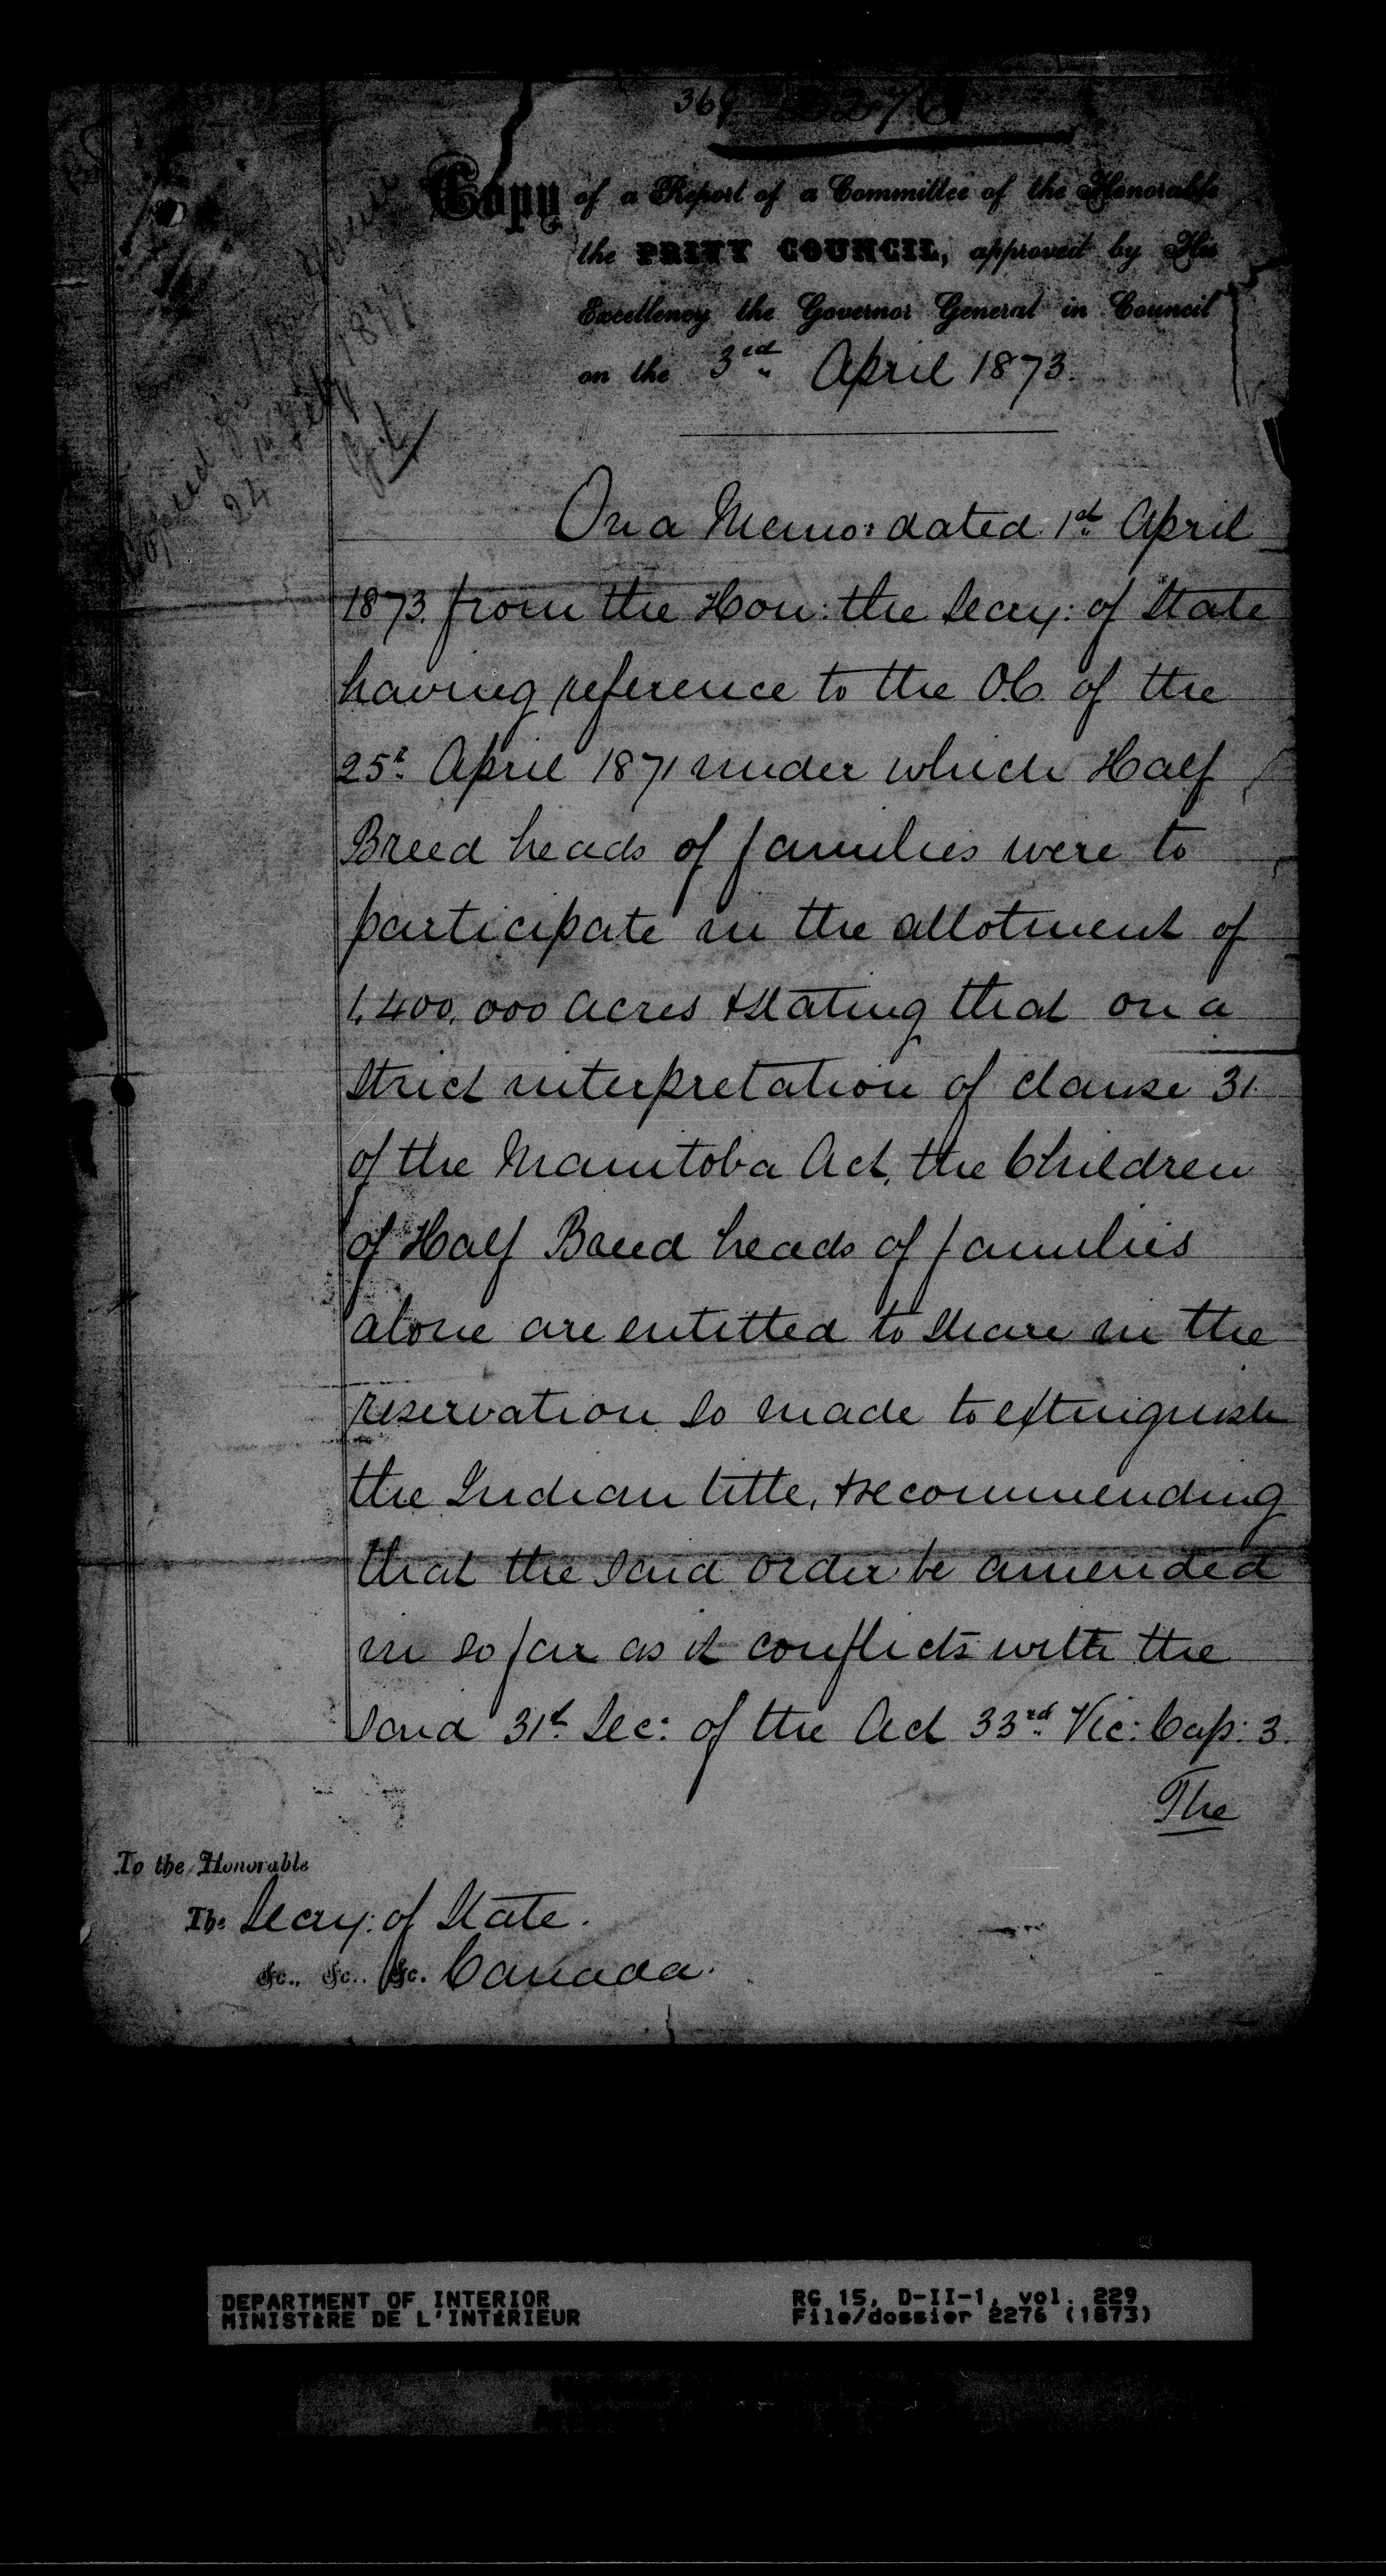 369 2276
Copy of a Report of a Committee of the Honorable
the PRIVY COUNCIL, approved by His
Excellency the Governor General in Council
on the 3rd April 1873.
Copied
24 Feby 1877
On a Memo: dated 1st April
1873. from the Hon: the Secy: of State
having reference to the O.C. of the
25th April 1871 under which Half
Breed heads of families were to
participate in the allotment of
1,400,000 acres & stating that on a
strict interpretation of clause 31
of the Manitoba Act, the Children
of Half Breed heads of families
alone are entitled to share in the
reservation so made to extinguish
the Indian title, & recommending
that the said order be amended
in so far as it conflicts with the
said 31st Sec: of the Act 33rd Vic: Cap: 3.
The
To the Honorable
The Secy: of State.
&c., &c., &c. Canada.
DEPARTMENT OF INTERIOR
MINISTÈRE DE L'INTÉRIEUR
RG 15, D-II-1, vol. 229
File/dossier 2276 (1873)